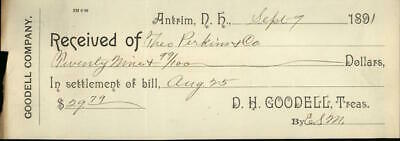 GOODELL COMPANY.
Antrim, N. H., Sept 7 1891
Received of Theo Perkins & Co
Twenty Nine & 79/100 Dollars,
In settlement of bill, Aug 25
$29 79 D. H. GOODELL, Treas.
By